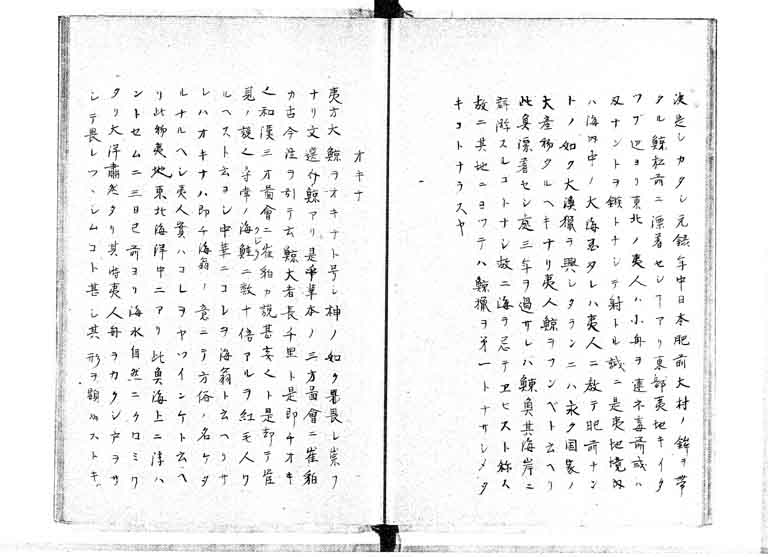 決定シカタシ元録年中日本肥前大村ノ銛ヲ帶
タル鯨松前ニ漂着セシアリ東部夷地キイタ
ツブ辺ヨリ東北ノ夷人ハ小舟ヲ連ネ毒箭或ハ
ナントヲ銕トナシテ射トル誠ニ是夷地境内
ハ海内中ノ大海基タレハ夷人ニ教テ肥前ナン
トノ如ク大漢獵ヲ興シタランニハ永ク国家ノ
大産物タルヘキナリ夷人鯨ヲフンベト云ヘリ
此奥漂着セシ處三年ヲ過サレバ鯨魚其海岸ニ
游スルコトナシ故ニ海ヲ忌テヱヒスト称ス
故ニ其地ニヨツテハ鯨獵ヲ第一トナサシメタ
キコトナラスヤ
オキナ
夷方大鯨ヲオキナト号シ神ノ如ク畏レ崇フ
ナリ文選介鯨アリ是本ノ三方圖會ニ崔豹
カ古今注ヲ引テ云鯨大者長千里ト是即チオキ
之和漢三才圖會ニ崔豹カ説甚妄ト是却テ崔
見ノ説之尋常ノ海鯨ニ数十倍アルヲ紅毛人ク
ルヘストト云ヨシ中華ニコレヲ海翁ト云ヘリサ
レハオキナハ即チ海翁ノ意ニテ方俗ノ名ケタ
ルナルヘシ夷人實ハコレヲヤツインケト云ヘ
リ此物夷地東北海洋中ニアリ此魚海上ニ浮ハ
ントセムニ三日已前ヨリ海水自然ニクロミワ
タリ大洋肅然タリ其時夷人舟ヲカクシ戸ヲサ
シテ畏レツヽシムコト甚シ其形ヲ顕ハストキ